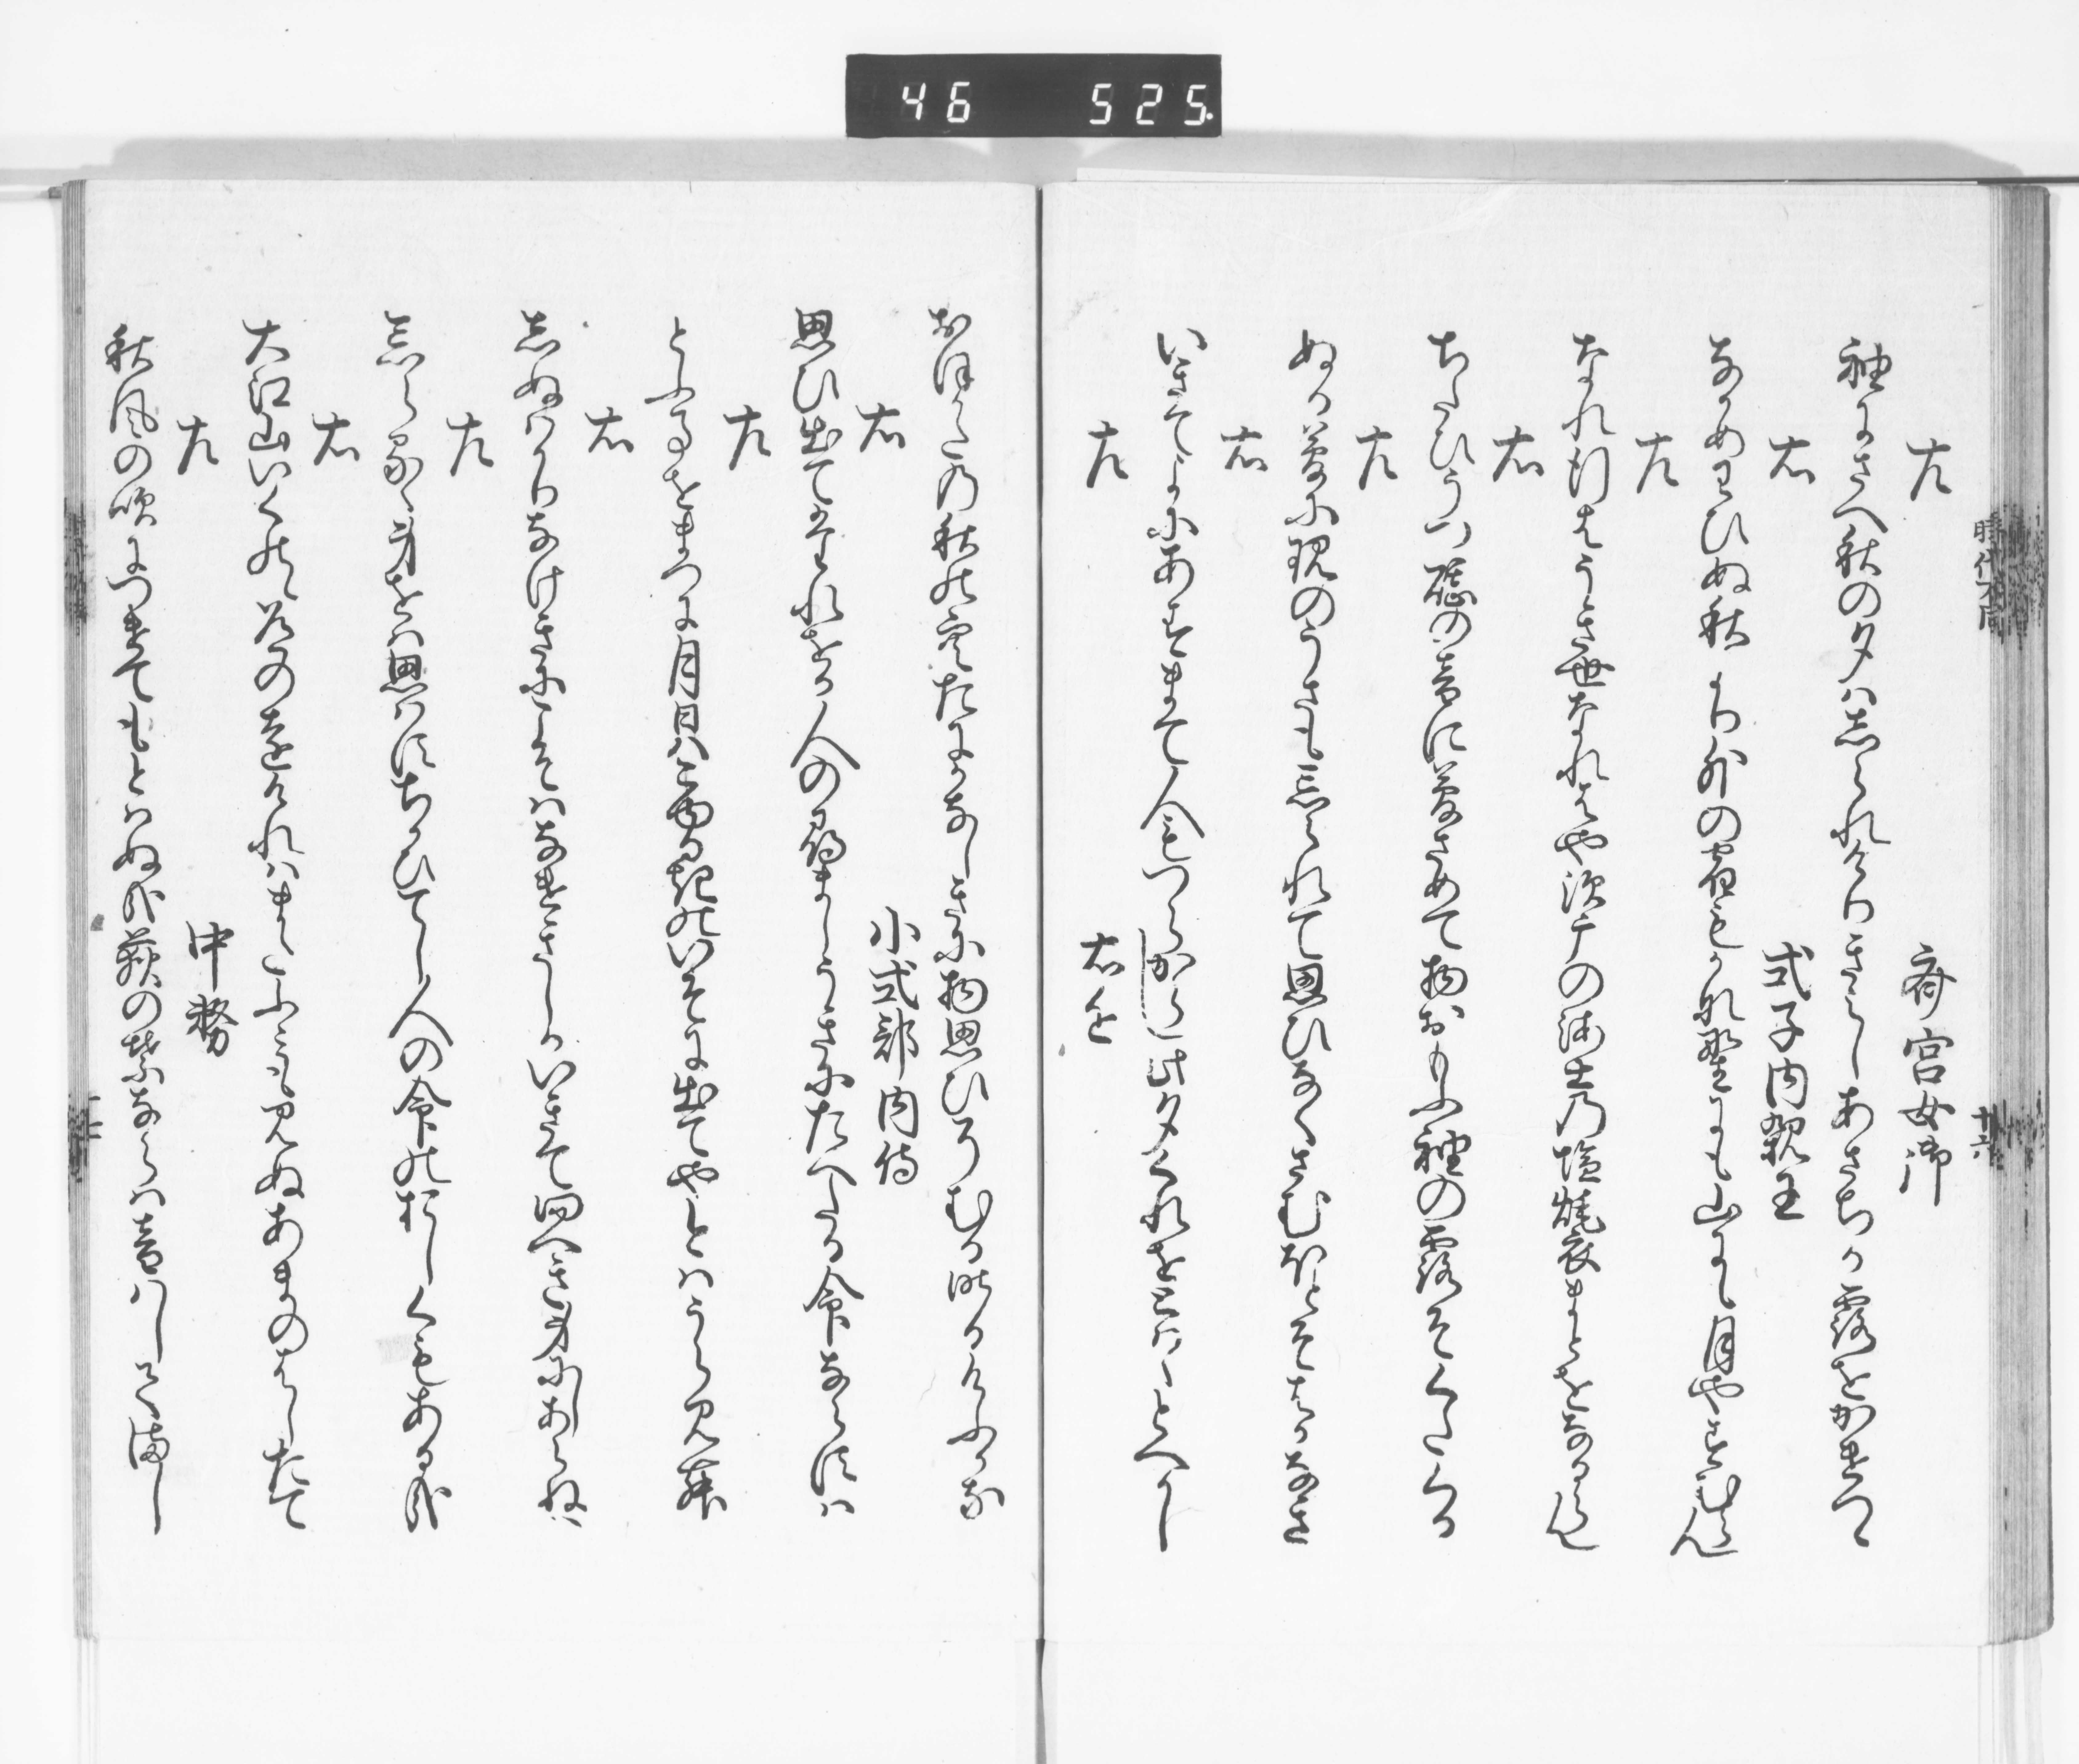 46 525.
時代不同
十六
左 斎宮女御
袖にさへ秋の夕はしられけりきえしあさちか露をかけつゝ
右 式子内親王
なかめわひぬ秋より外の宿もかな野にも山にも月やすむらん
左
なれ行はうき世なれはや須广の浦士乃塩焼衣まとをなるらん
右
ちたひうつ砧の音に夢さめて物おもふ袖の露そくたくる
左
ぬる夢に現のうさも忘られて思ひなくさむほとそはかなき
右
いきてよにあすまて人もつらからし此夕くれをとはゝとへかし
左 "右"を
おほかたの秋のたになしきに物思ひそむる比にもあるかな
右 小式部内侍
思ひ出てたれをか人の尋ましうきにたへたる命ならすは
左
とふ事をまつに月日はこゆるきのいそに出てやとはうらみむ
右
しぬはかりなけきにこそはなけきしかいきてとふへき身にしあらねは
左
忘らるゝ身をは思はすちかひてし人の命のおしくもある哉
右
大江山いくのゝ道の遠けれはまたふみも見ぬあまのはしたて
左 中務
秋風の吹につけてもとはぬ哉荻の葉ならは音はしてまし